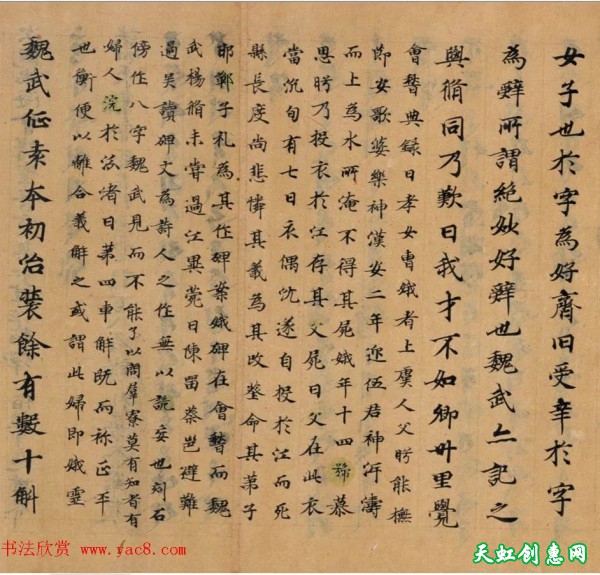 女子也於字為好齊臼受辛於字
為辤所謂絶妙好辤也魏武亦記之
與脩同乃歎曰我才不如卿卅里覺
會稽典録曰孝女曹娥者上虞人父盱能撫
節安歌婆樂神漢安二年迎伍君神泝濤
而上為水所淹不得其屍娥年十四號慕
思盱乃投衣於江存其父屍曰父在此衣
當沉旬有七日衣偶沉遂自投於江而死
縣長度尚悲憐其義為其改葬命其弟子
邯鄲子礼為其作碑案娥碑在會稽而魏
武楊脩未嘗過江異菀曰陳留蔡邕避難
過吳讀碑文為詩人之作無以詭妄也刻石
傍作八字魏武見而不能了以問羣寮莫有知者有
婦人浣於汾渚曰第四車解既而祢正平
也衡便以離合義解之或謂此婦即娥靈
魏武征袁本初治裝餘有數十斛
书法欣赏 www.yac8.com
天虹创惠网